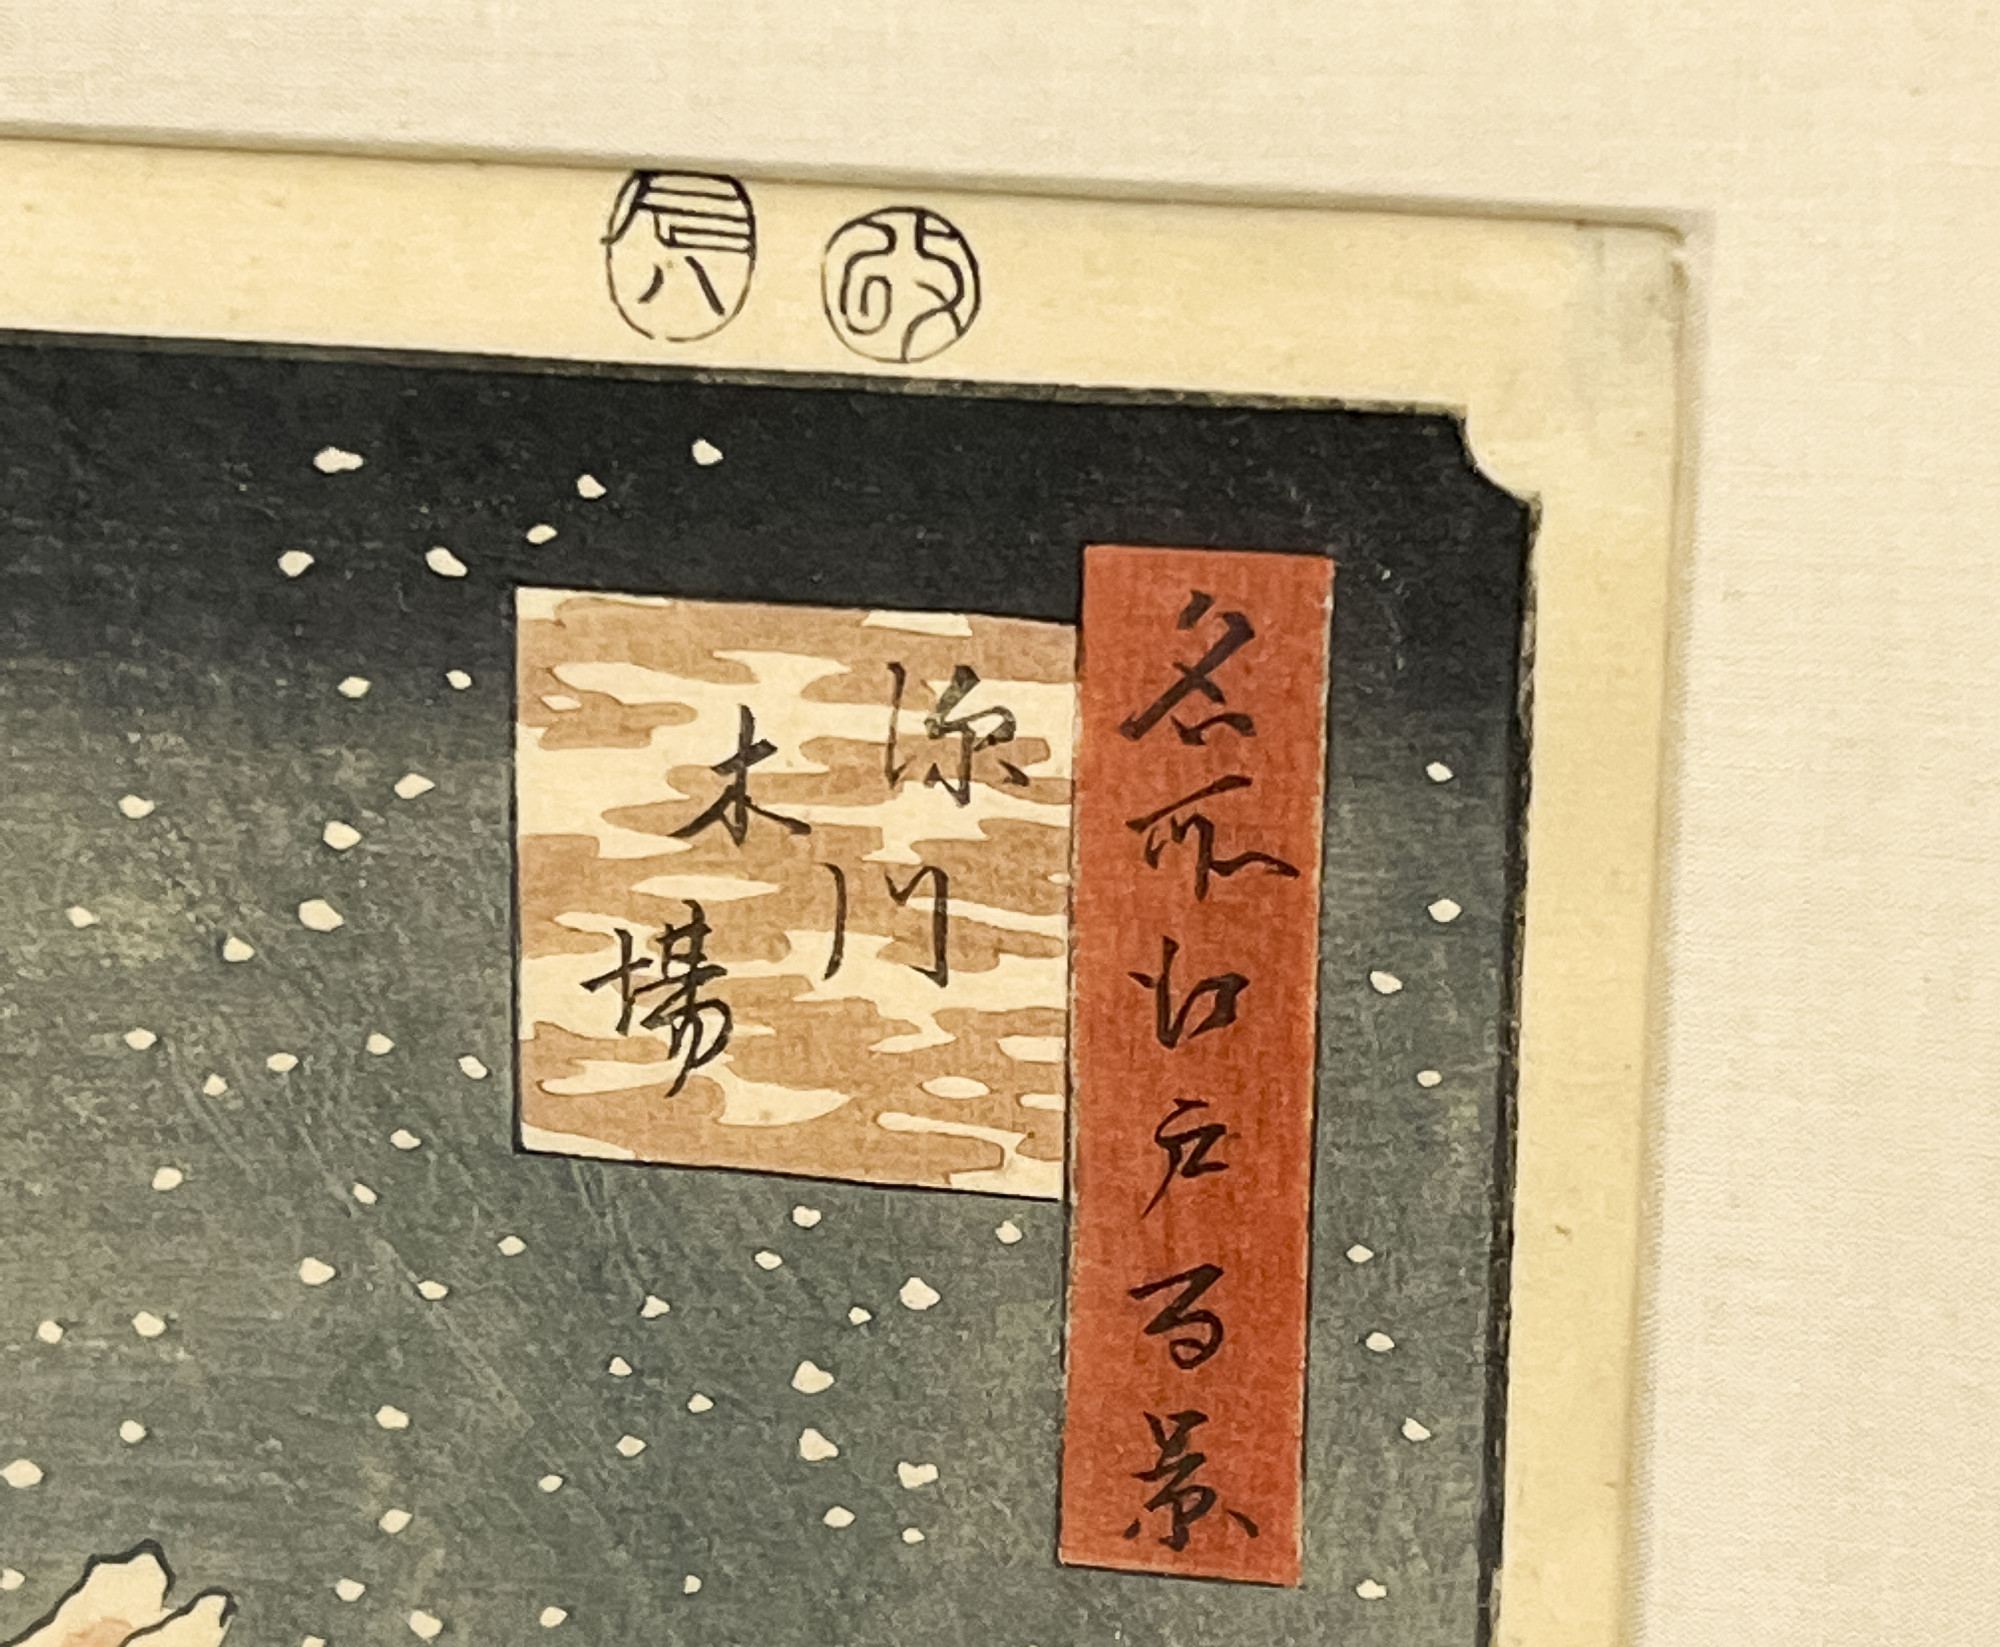 名所江戸百景
深川
木場
改
辰八